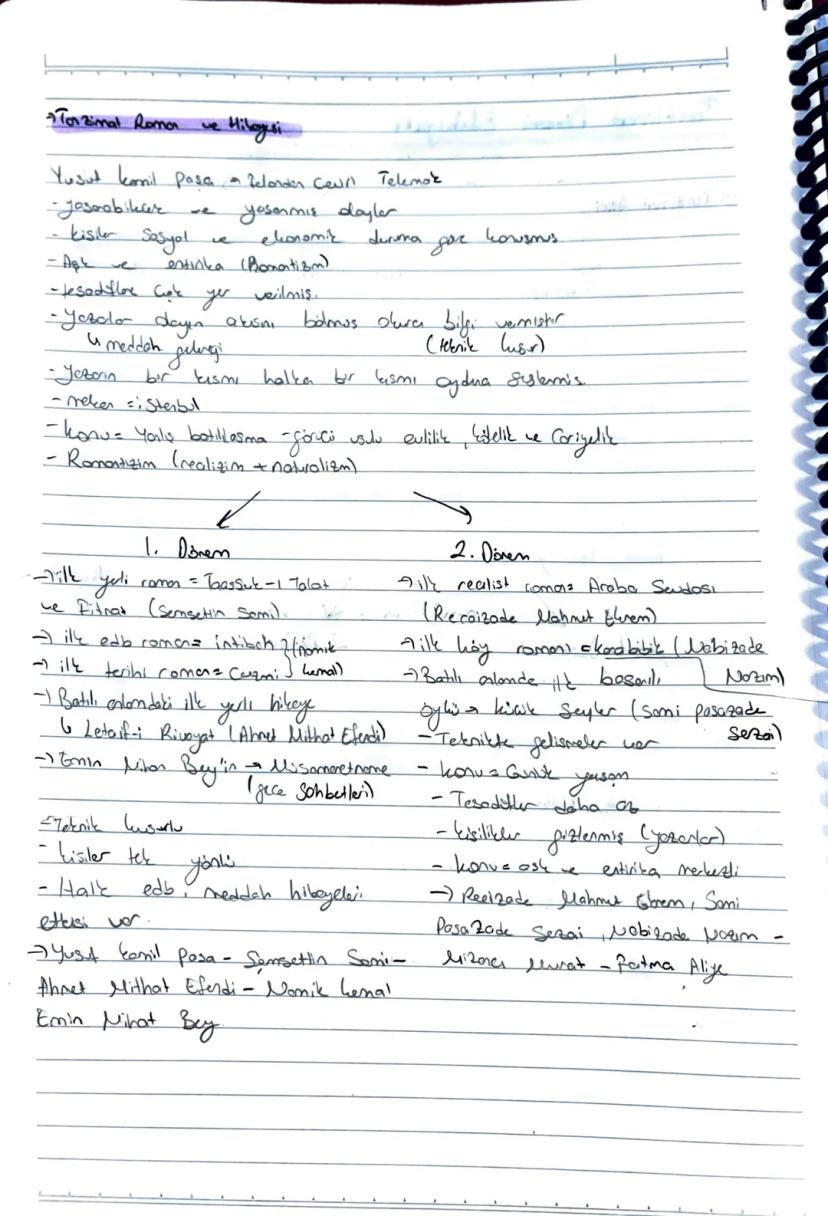 →Tanzimat Roman ve Hikayesi
Yusuf kamil paşa → Telemak
- yaşanabilecek ve yaşanmış olaylar
- kişiler sosyal ve ekonomik duruma göre konuşmuş.
- Aşk ve entirika (Romantizm)
- tesadüflere çok yer verilmiş.
- yazarlar olayın akışını bölmüş okura bilgi vermiştir
↳ meddah geleneği (teknik kusur)
- yazarın bir kısmı halka bir kısmı aydına seslenmiş.
- mekan = istanbul
- konu = Yanlış batılılaşma - görücü usulu evlilik, kölelik ve Cariyelik
- Romantizim (realizim + naturalizm)
1. Dönem
→ilk yerli roman = Taaşşuk-ı Talat
ve Fitnat (Şemsettin Sami)
→ ilk edb roman= intibah } (namık
→ ilk tarihi roman= Cezmi } kemal)
→ Batılı anlamdaki ilk yerli hikaye
↳ Letaif-i Rivayat (Ahmet Mithat Efendi)
→ Emin Nihat Bey'in → Müsameretname
(gece sohbetleri)
- Teknik kusurlu
- kişiler tek yönlü
- Halk edb, meddah hikayeleri
etkisi var.
→ Yusuf kamil paşa - Şemsettin Sami -
Ahmet Mithat Efendi - Namık kemal
Emin Nihat Bey
2. Dönem
→ ilk realist roman= Araba Sevdası
(Recaizade Mahmut Ekrem)
→ ilk köy romanı = karabibik (Nabizade
Nazım)
→ Batılı anlamda ilk başarılı
öykü → küçük şeyler (Sami paşazade
Sezai)
- Teknikte gelişmeler var
- konu = Günlük yaşam
- Tesadüfler daha az
- kişilikler gizlenmiş (yazarlar)
- konu = aşk ve entirika merkezli
→ Mahmut Ekrem, Sami
Paşazade Sezai, Nabizade Nazım -
Mizancı Murat - Fatma Aliye